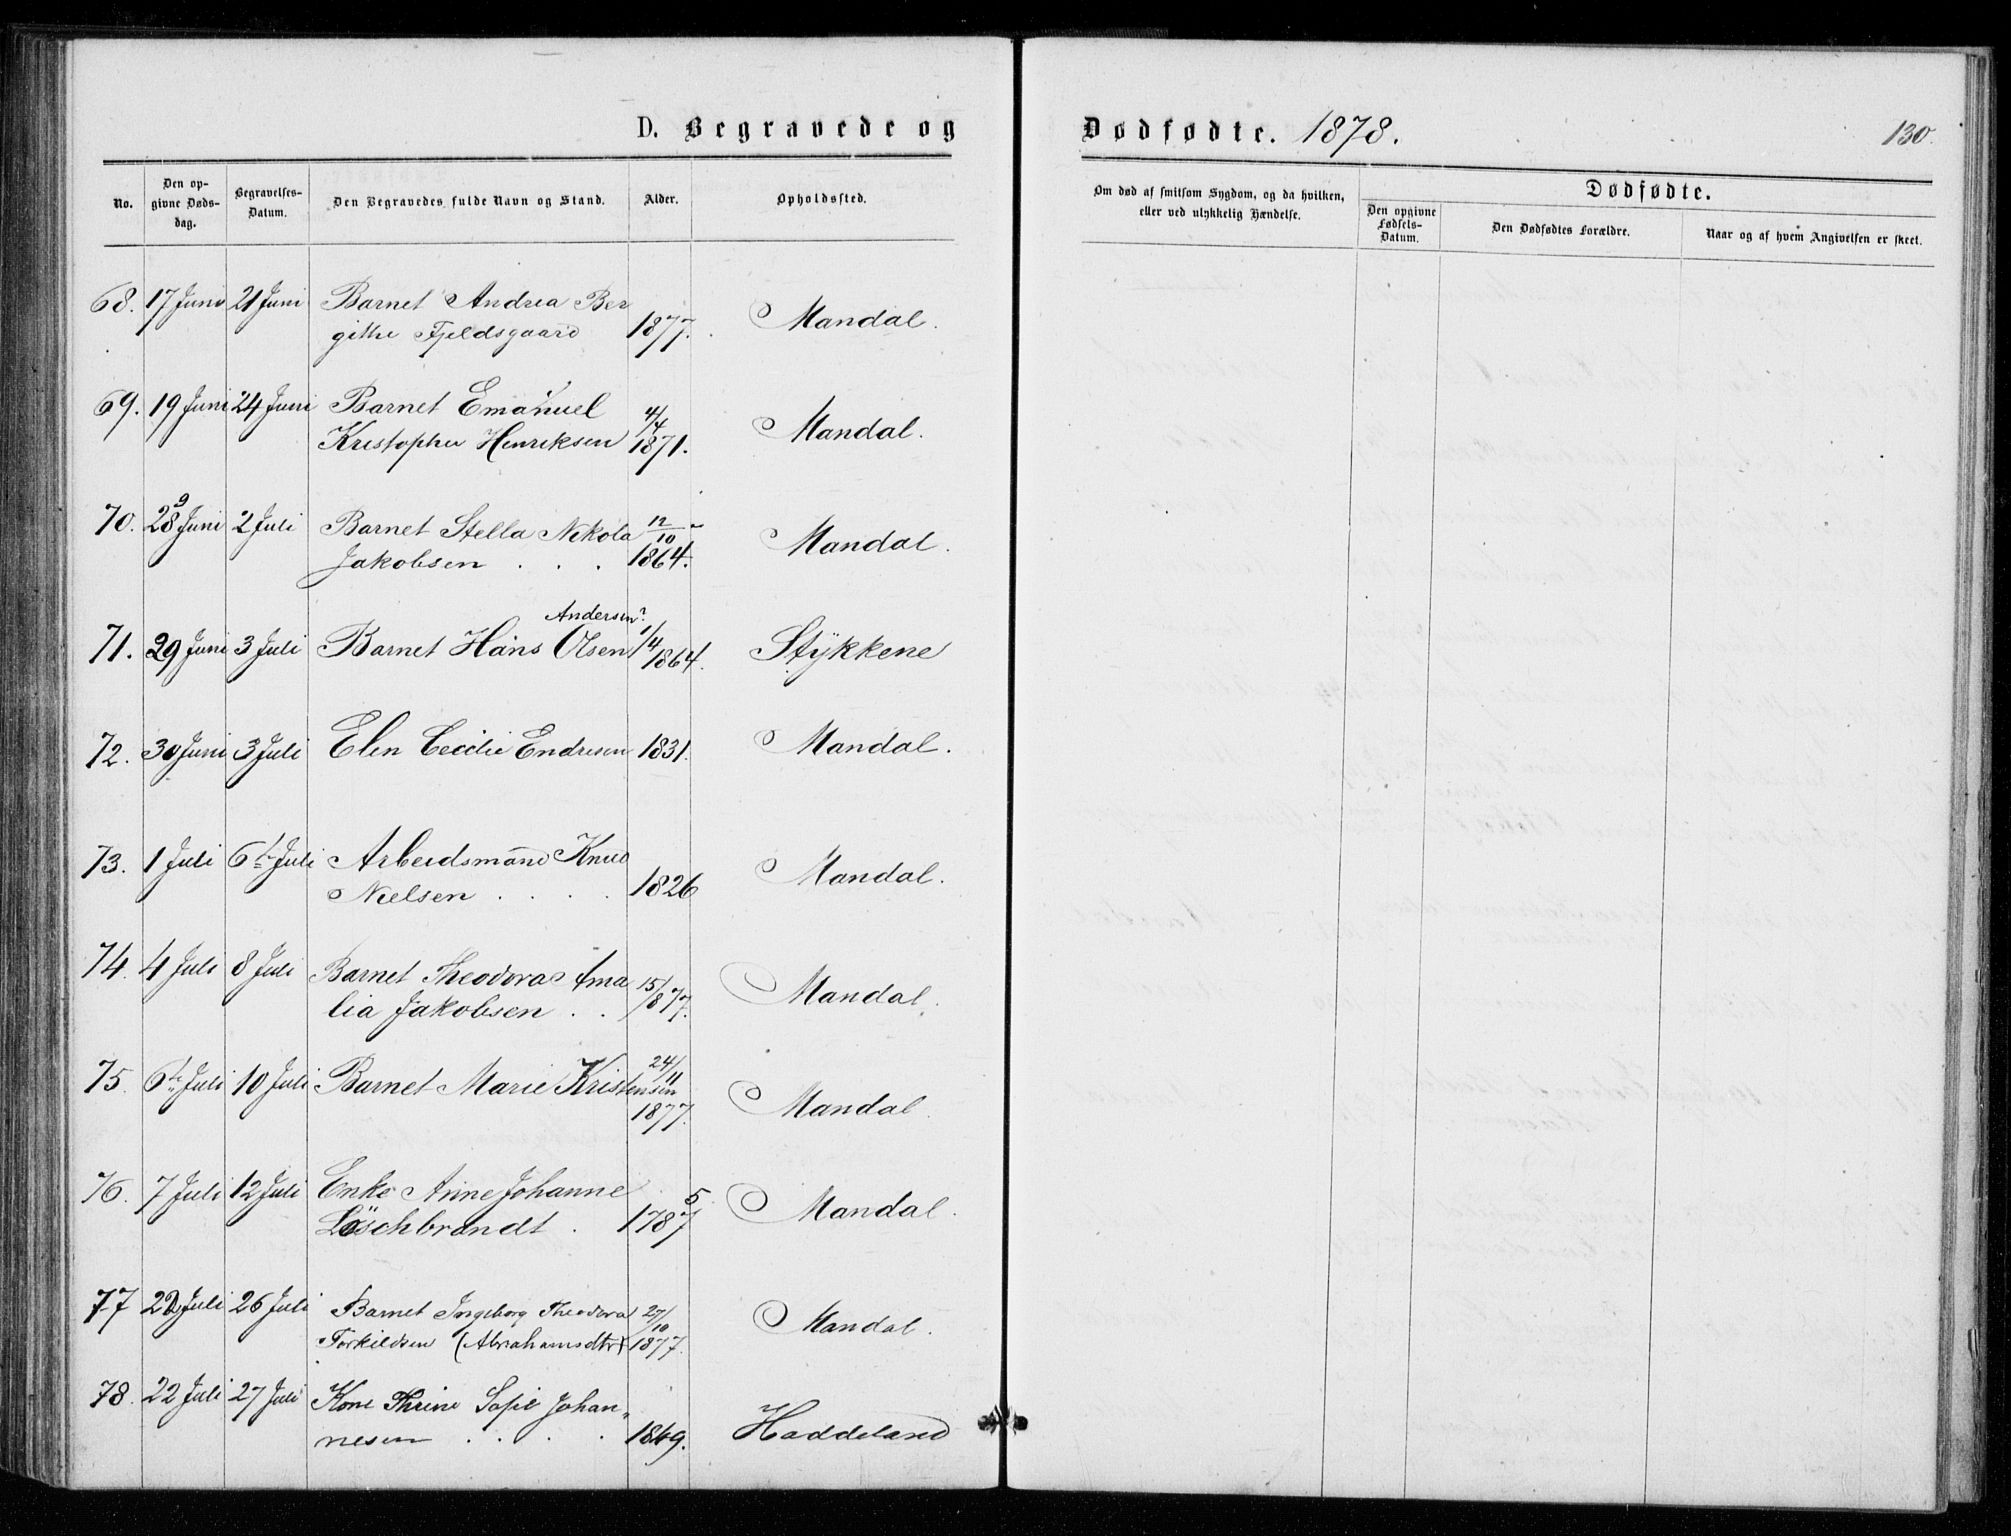 D. Begravede og Dødfødte. 1878. 130.
No.
Den opgivne Døds-dag.
Begravelses-Datum.
Den Begravedes fulde Navn og Stand.
Alder.
Opholdssted.
Om død af smitsom Sygdom, og da hvilken, eller ved ulykkelig Hændelse.
Dødfødte.
Den opgivne Fødsels-Datum.
Den Dødfødtes Forældre.
Naar og af hvem Angivelsen er skeet.
68. 17 Juni 21 Juni Barnet Andrea Ber
githe Fjeldsgaard 1877. Mandal.
69. 19 Juni 24 Juni Barnet Emanuel 4/4
Kristopher Henriksen 1871. Mandal.
70. 28 9 Juni 2 Juli Barnet Stella Nikola 12/10
Jakobsen . . . 1864. Mandal.
Andersen?
71. 29 Juni 3 Juli Barnet Hans Olsen 1/4 1864. Stykkene
72. 30 Juni 3 Juli Elen Cecilie Endresen 1831. Mandal.
73. 1 Juli 6te Juli Arbeidsmand Knud
Nielsen . . . . 1826 Mandal.
74. 4 Juli 8 Juli Barnet Theodora Ama
lia Jakobsen . . 15/8 77. Mandal.
75. 6te Juli 10 Juli Barnet Marie Kristensen 24/11
1877. Mandal.
76. 7 Juli 12 Juli Enke Anne Johanne 5
Löschbrandt . 1787 Mandal.
77 22 Juli 26 Juli Barnet Ingeborg Theodora 27/10
Torkildsen (Abrahamsdtr) 1877. Mandal.
78. 22 Juli 27 Juli Kone Thrine Sofie Johan„
nesen . . . . 1849. Haddeland